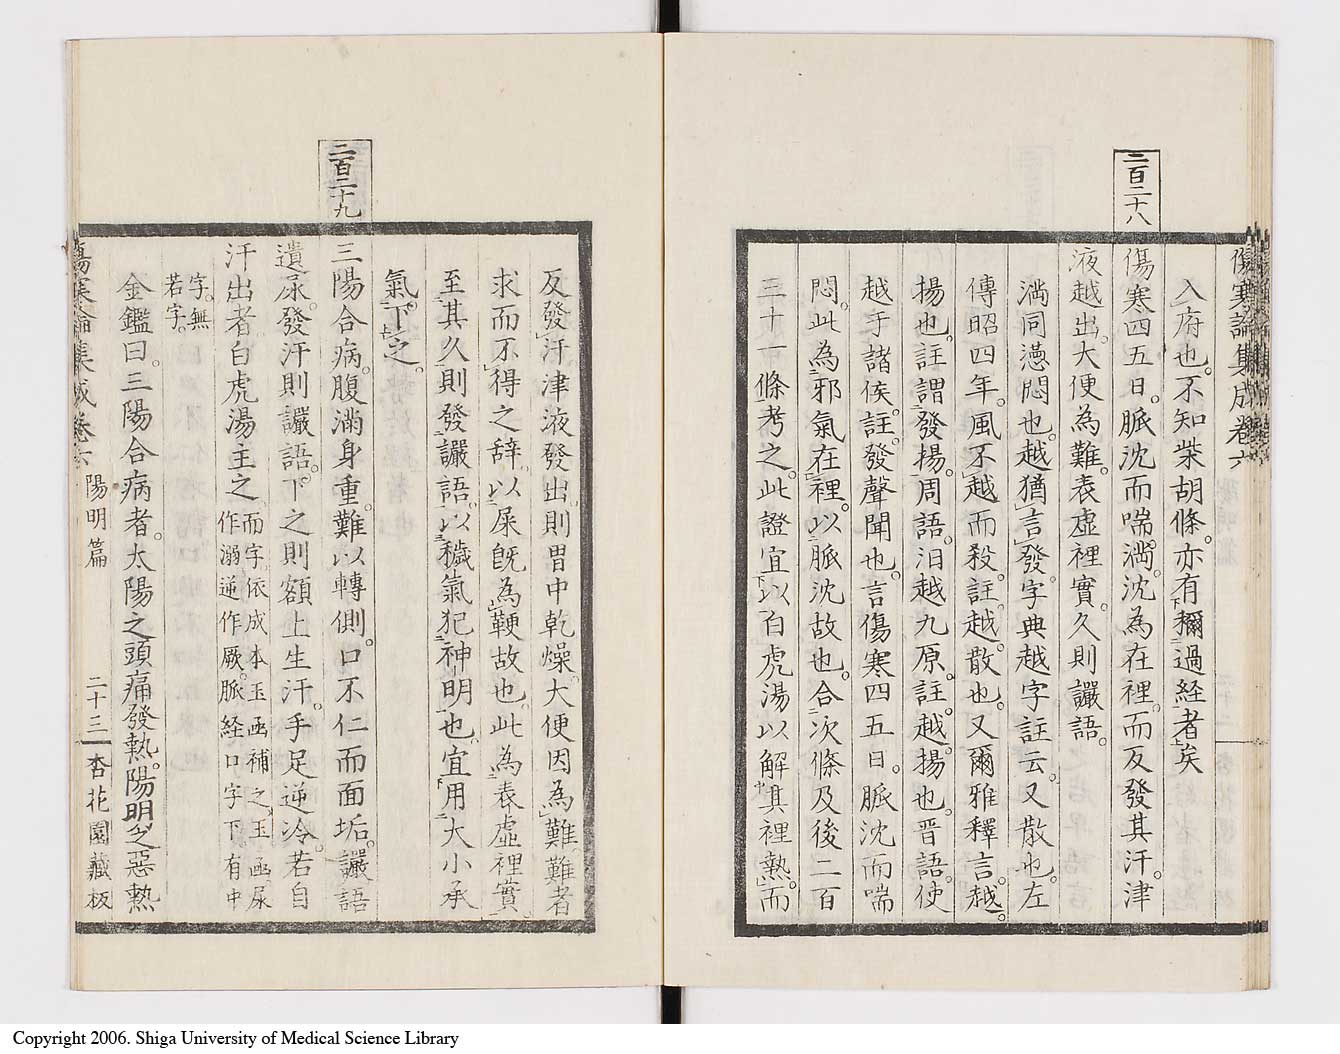 傷寒論集成卷六
二百二十八
入府也。不知柴胡條。亦有稱過経者矣
傷寒四五日。脈沈而喘。満。沈為在裡。而反發其汗。津
液越出。大便為難。表虛裡實。久則讝語。
満同懣悶也。越猶言發。字典越字註云。又散也。左
傳昭四年。風不越而殺。註。越。散也。又爾雅釋言。越。
揚也。註謂發揚。周語。汨越九原。註。越。揚也。晋語。使
越于諸侯。註。發聲聞也。言傷寒四五日。脈沈而喘
悶。此為邪氣在裡。以脈沈故也。合次條及後二百
三十一條考之。此證宜以白虎湯以解其裡熱。而
反發汗津液發出。則胃中乾燥。大便因為難。難者
求而不得之辞。以屎既為鞕故也。此為表虛裡實。
至其久則發讝語。以穢氣犯神明也。宜用大小承
氣。下之。
二百二十九
三陽合病。腹満身重。難以轉側。口不仁而面垢。讝語
遺尿。發汗則讝語。下之則額上生汗。手足逆冷。若自
汗出者。白虎湯主之 而字。依成本玉函補之。玉函。尿
作溺逆作厥。脈経口字下有中
字。無
若字。
金鑑曰。三陽合病者。太陽之頭痛發熱。陽明之惡熱
傷寒論集成卷六 陽明篇 二十三 杏花園藏板
Copyright 2006. Shiga University of Medical Science Library